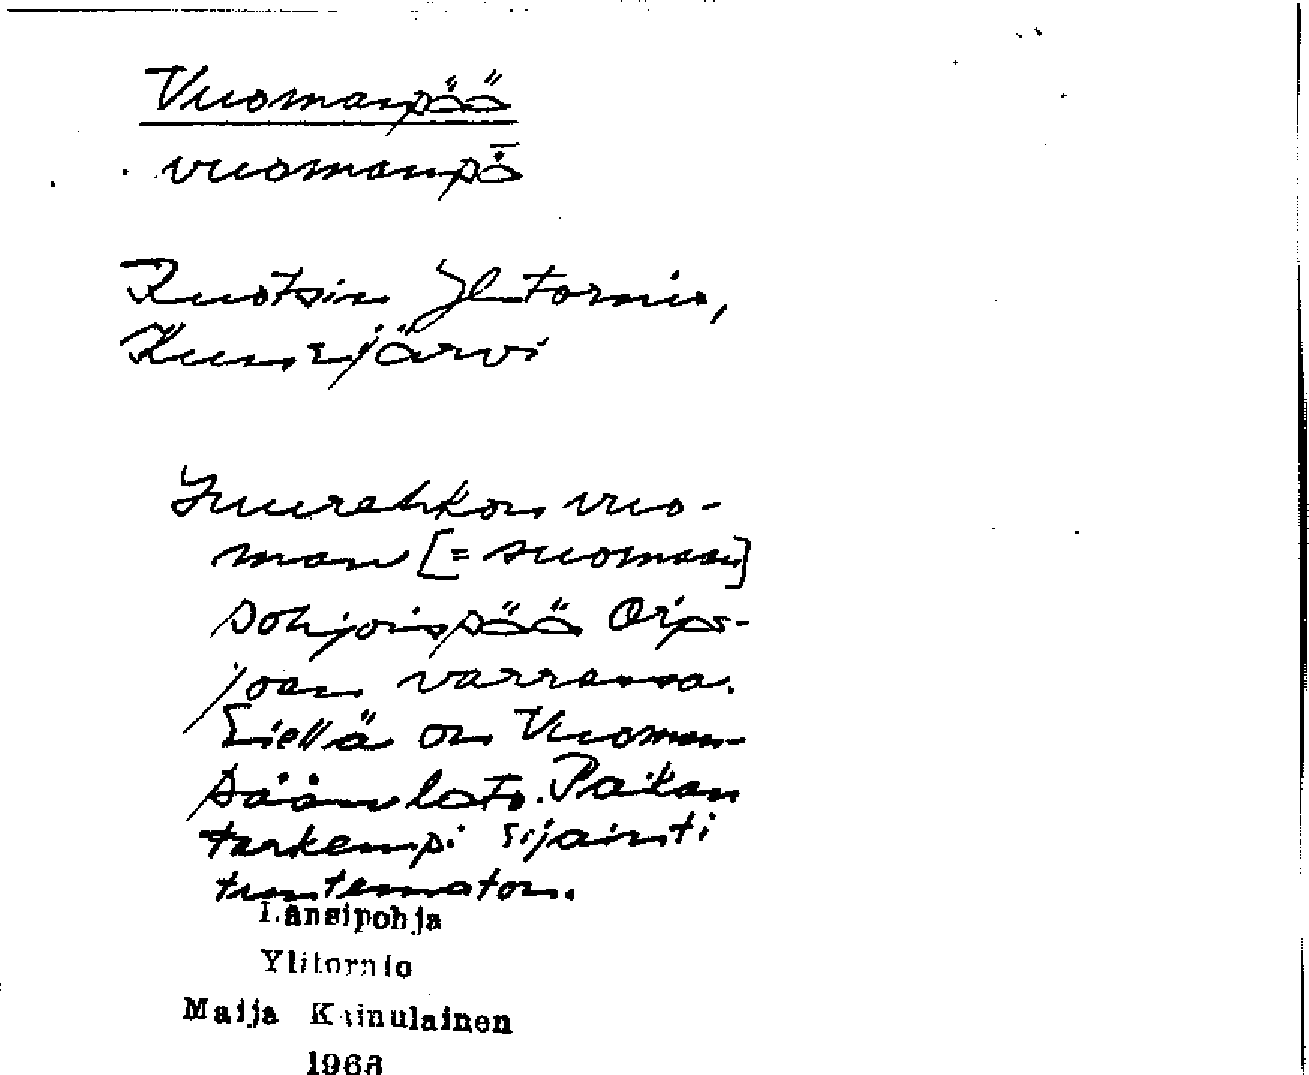 Vuomanpää
vuomanpǟ
Ruotsin Ylitornio,
Kuusijärvi
Suurehkon vuo-
man [= suoman]
pohjoispää Orjas-
joen varressa.
Siellä on Vuoman-
pään lato. Paikan
tarkempi sijainti
tuntematon.
Länsipohja
Ylitornio
Maija Kainulainen
1968